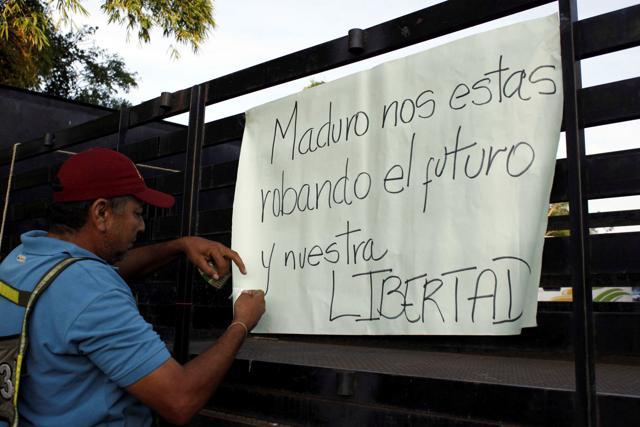 Maduro nos estas
robando el futuro
y nuestra
LIBERTAD
3